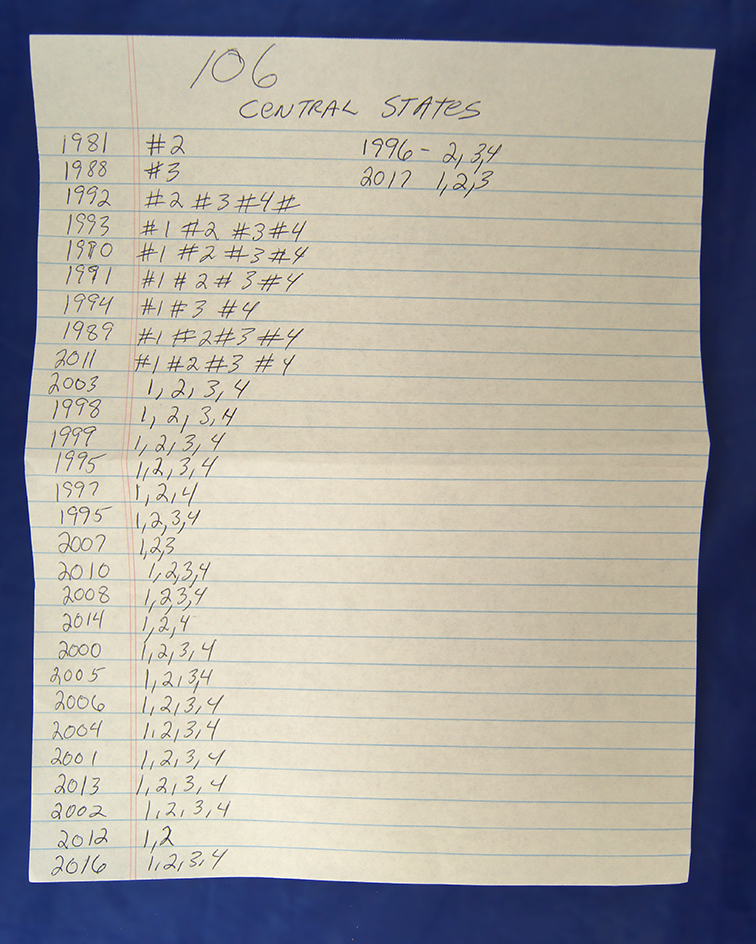 106
CENTRAL STATES
1981 #2 1996 - 2,3,4
1988 #3 2017 1,2,3
1992 #2 #3 #4 #
1993 #1 #2 #3 #4
1990 #1 #2 #3 #4
1991 #1 #2 #3 #4
1994 #1 #3 #4
1989 #1 #2 #3 #4
2011 #1 #2 #3 #4
2003 1, 2, 3, 4
1998 1, 2, 3, 4
1999 1, 2, 3, 4
1995 1, 2, 3, 4
1997 1, 2, 4
1995 1, 2, 3, 4
2007 1, 23
2010 1, 2, 3, 4
2008 1, 2 3, 4
2014 1, 2, 4
2000 1, 2, 3, 4
2005 1, 2, 3, 4
2006 1, 2, 3, 4
2004 1, 2, 3, 4
2001 1, 2, 3, 4
2013 1, 2, 3, 4
2002 1, 2, 3, 4
2012 1, 2
2016 1, 2, 3, 4